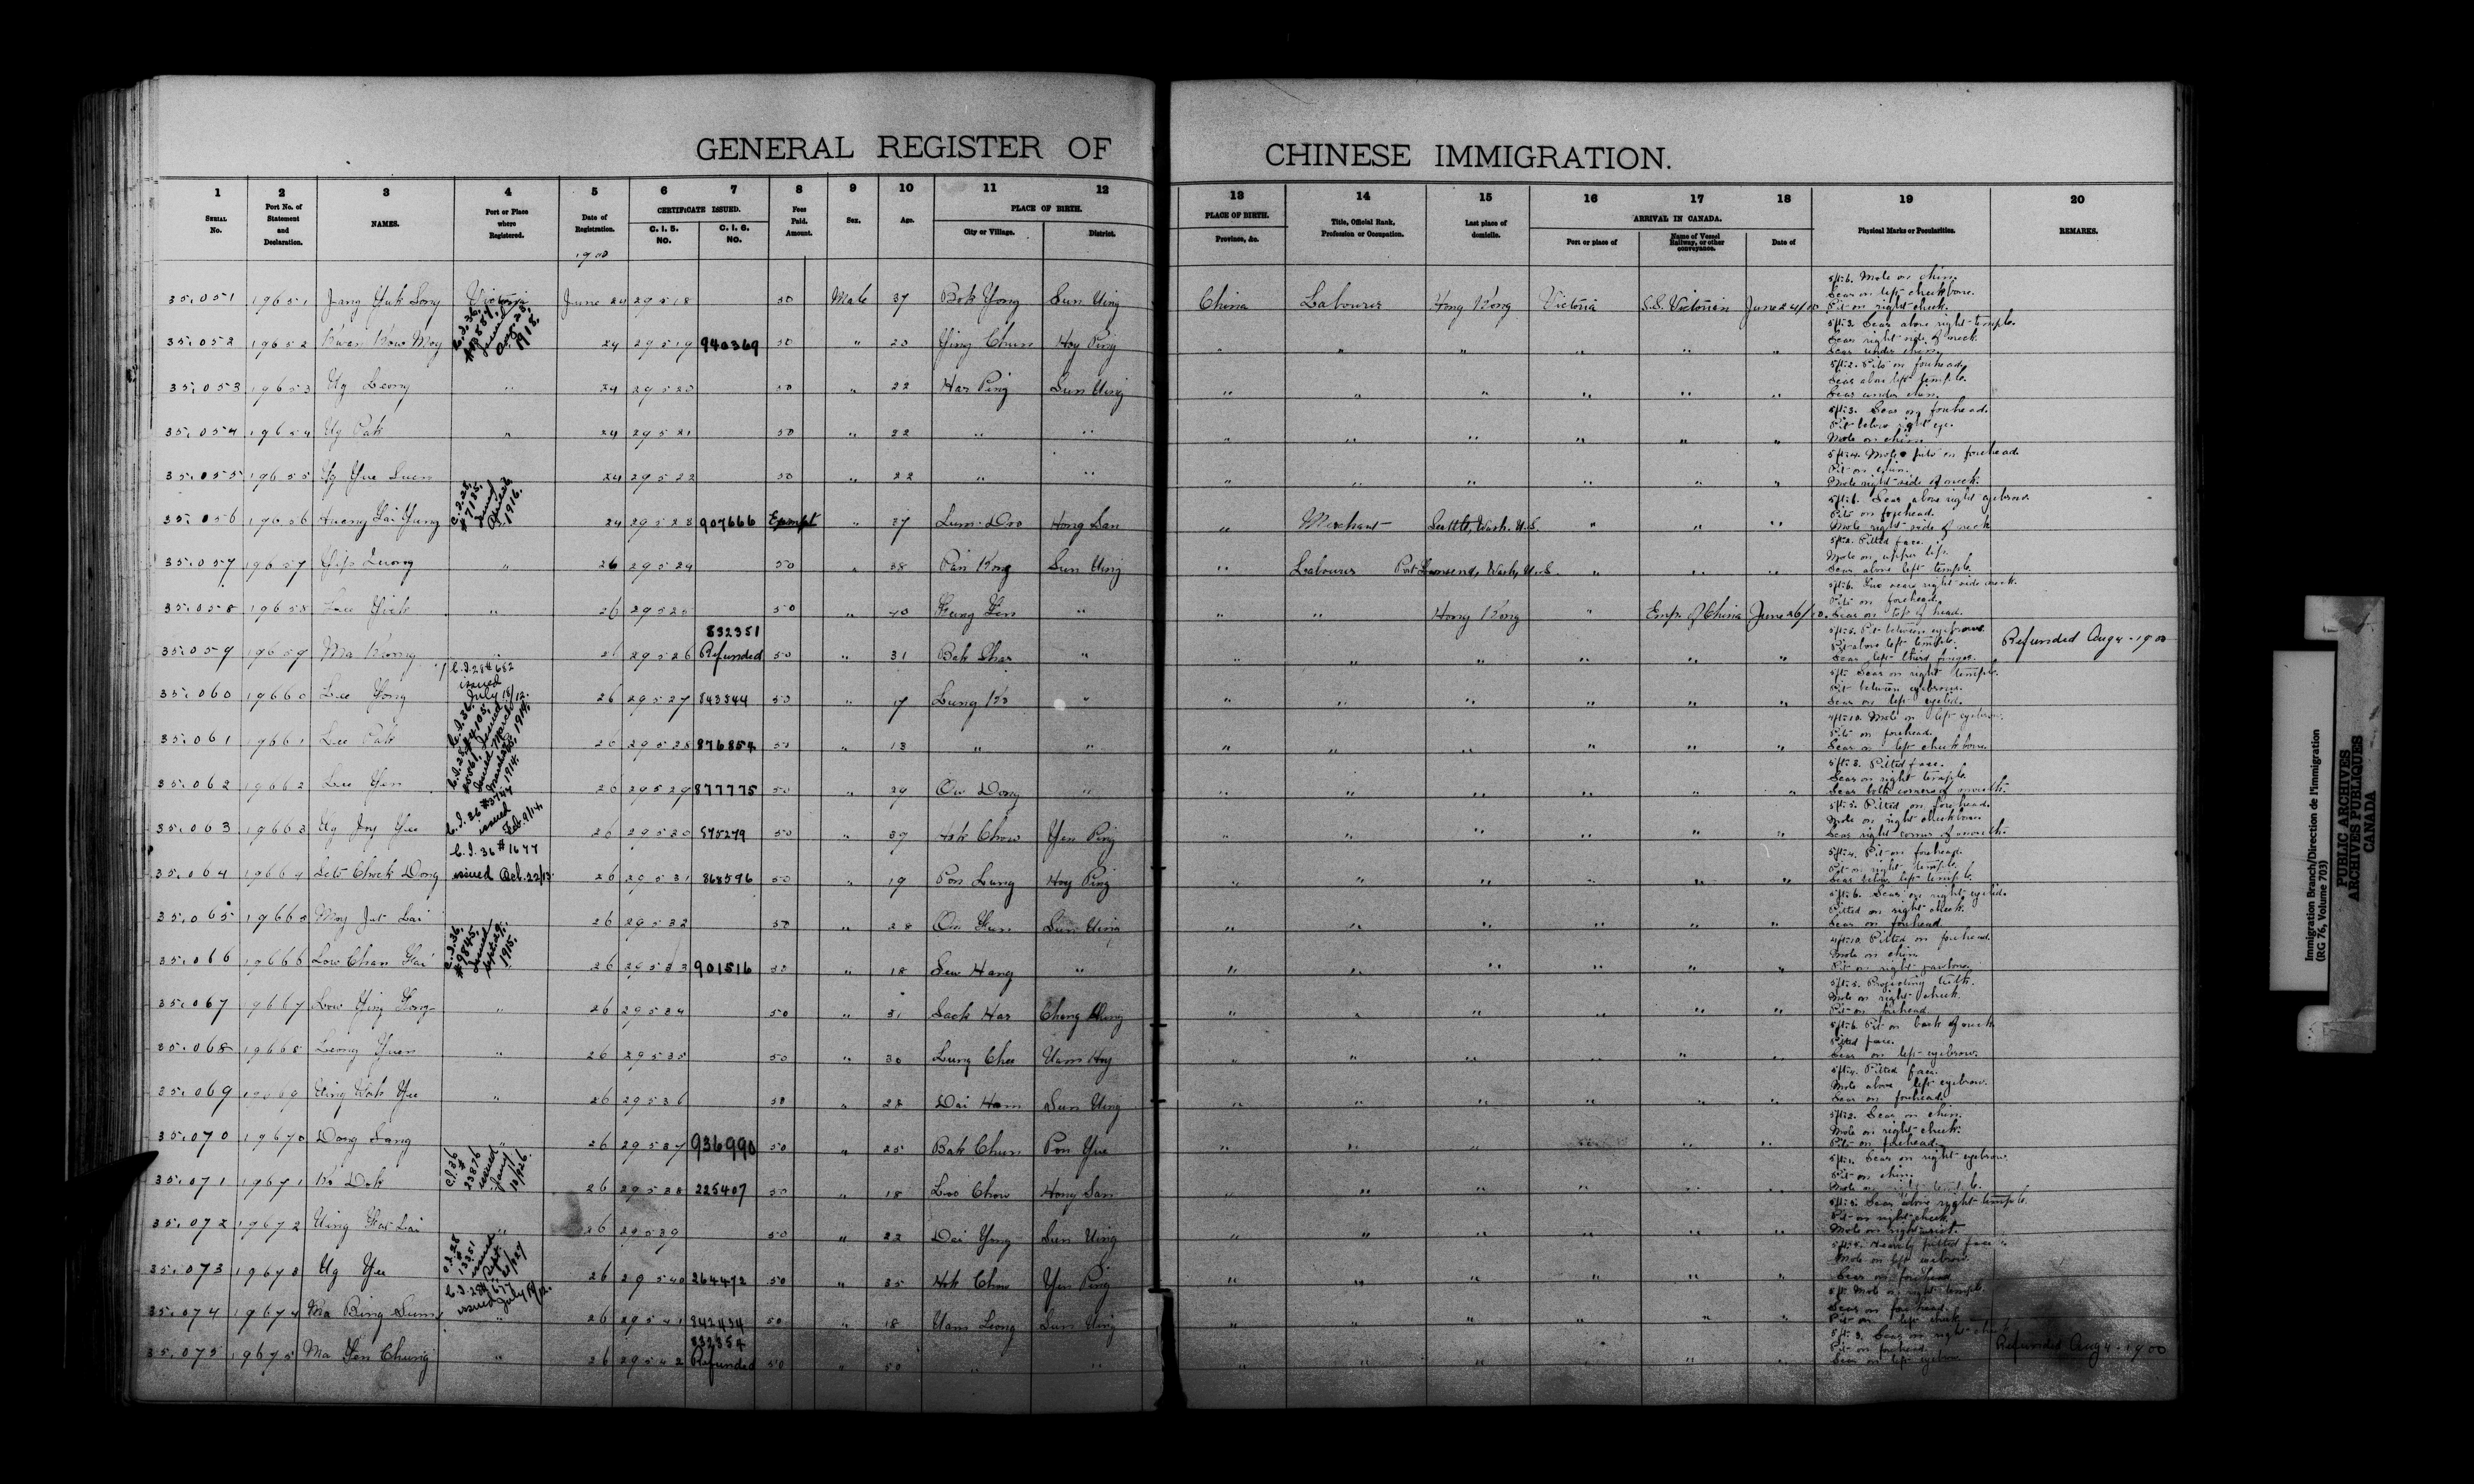 GENERAL REGISTER OF CHINESE IMMIGRATION.
1 2 3 4 5 6 7 8 9 10 11 12 13 14 15 16 17 18 19 20
SERIAL No. Port No. of Statement and Declaration. NAMES. Port or Place where Registered. Date of Registration. CERTIFICATE ISSUED. C. I. 5. NO. C. I. 6. NO. Fees Paid. Amount. Sex. Age. PLACE OF BIRTH. City or Village. District. PLACE OF BIRTH. Province, &c. Title, Official Rank, Profession or Occupation. Last place of domicile. ARRIVAL IN CANADA. Port or place of Name of Vessel Railway, or other conveyance. Date of Physical Marks or Peculiarities. REMARKS.
1900
35.051 19651 Victoria June 24 29518 50 Male 37 Bok Yong Sun Ning China Labourer Hong Kong Victoria S.S. Victorian June 24/00 5ft:6. Mole on chin. Scar on left cheekbone. Pit on right cheek.
35.052 19652 24 29519 940369 50 " 23 Hoy Ping " " " " " " 5ft:3. Scar above right temple. Scar right side of neck. Scar under chin.
35.053 19653 Ng Leong " 24 29520 50 " 22 Har Ping Sun Ning " " " " " " 5ft:2. Pits on forehead. Scar above left temple. Scar under chin.
35.054 19654 Ng Pak " 24 29521 50 " 22 " " " " " " " " 5ft:3. Scar on forehead. Pit below right eye. Mole on chin.
35.055 19655 Ng Yue Suen 24 29522 50 " 22 " " " " " " " " 5ft:4. Pit on chin. Mole right side of neck.
35.056 19656 C.I.28, #7185, issued 1916. 24 29523 907666 Exempt " 37 Hong San " Merchant Seattle, Wash. U.S. " " " Scar above right eyebrow. Pits on forehead. Mole right side of neck
35.057 19657 " 26 29524 50 " 38 Pan Kong Sun Ning " Labourer Port Townsend, Wash, U.S. " " " 5ft:2. Pitted face. Mole on upper lip. Scar above left temple.
35.058 19658 " 26 29525 50 " 40 " " " Hong Kong " Emp. of China June 26/00. 5ft:6. Two scars right side neck. Pits on forehead. Scar on top of head.
35.059 19659 Ma Kong " 26 29526 832351 Refunded 50 " 31 Bak Shar " " " " " " " 5ft:5. Pit between eyebrows. Pit above left temple. Scar left third finger. Refunded Aug 4.1900
35.060 19660 Lee Yong C.I.28 #652 issued July 18/12. 26 29527 843344 50 " 17 Lung Ko " " " " " " " Scar on right temple. Pit between eyebrows. Scar on left eyelid.
35.061 19661 Lee Pak 26 29528 876854 50 " 18 " " " " " " " " 4ft:10. Mole on left eyebrow. Pits on forehead. Scar on left cheek bone.
35.062 19662 Lee Yen 26 29529 877775 50 " 29 Ow Dong " " " " " " " 5ft:3. Pitted face. Scar on right temple. Scar both corners of mouth.
35.063 19663 Ng Joy Yee C.I.26 #3744 issued Feb. 9/14. 26 29530 50 " 39 Hok Chow Yen Ping " " " " " " 5ft:5. Pitted on forehead. Mole on right cheekbone. Scar right corner of mouth.
35.064 19664 Seto Chock Dong C.I. 36 #1677 issued Oct. 22/13. 26 29531 868596 50 " 19 Pon Lung Hoy Ping " " " " " " 5ft:4. Pit on forehead. Pit on right temple. Scar below left temple.
35.065 19665 Moy Jut Lai 26 29532 50 " 28 Sun Ning " " " " " " 5ft:6. Scar on right eyelid. Pitted on right cheek. Scar on forehead.
35.066 19666 Low Chan Kai C.I.36. #9845. issued Sept. 29. 1915. 26 29533 901516 50 " 18 Sew Hang " " " " " " " 4ft:10. Pitted on forehead. Mole on chin. Pit on right jawbone.
35.067 19667 " 26 29534 50 " 31 Sack Har " " " " " " 5ft:5. Projecting teeth. Mole on right cheek. Pit on forehead.
35.068 19668 Leong Yuen " 26 29535 50 " 30 Lung Chee Nam Hoy " " " " " " 5ft:6. Pit on back of neck. Pitted face. Scar on left eyebrow.
35.069 19669 " 26 29536 50 " 28 Dai Ham Sun Ning " " " " " " 5ft:4. Pitted face. Mole above left eyebrow. Scar on forehead.
35.070 19670 Dong Sang " 26 29537 936990 50 " 25 Bak Chun Pon Yue " " " " " " 5ft:2. Scar on chin. Mole on right cheek. Pits on forehead.
35.071 19671 Ko Dok C.I.36 # 23876 issued Jany 10/1926. 26 29538 225407 50 " 18 Loo Chow Hong San " " " " " " 5ft:1. Scar on right eyebrow. Pit on chin. Mole on right temple.
35.072 19672 " 26 29539 50 " 22 Dai Yong Sun Ning " " " " " " 5ft:5. Scar above right temple. Pit on right cheek. Mole on right wrist.
35.073 19673 Ng Yee C.I.28 issued Sept. 26 29540 264472 50 " 35 Hok Chow Yen Ping " " " " " " 5ft:4. Heavily pitted face. Mole on left eyebrow. Scar on forehead.
35.074 19674 Ma Bing Sum C.I.28 #677 issued July 19/12. 26 29541 842434 50 " 18 Nam Leong Sun Ning " " " " " " Mole on right temple. Scar on forehead. Pit on left cheek.
35.075 19675 Ma Yen Chung " 26 29542 832354 Refunded 50 " 50 " " " " " " " " Scar on right Pit on forehead. Scar on left eyebrow Refunded Aug 4.1900
Immigration Branch/Direction de l'immigration
(RG 76, Volume 703)
PUBLIC ARCHIVES
ARCHIVES PUBLIQUES
CANADA